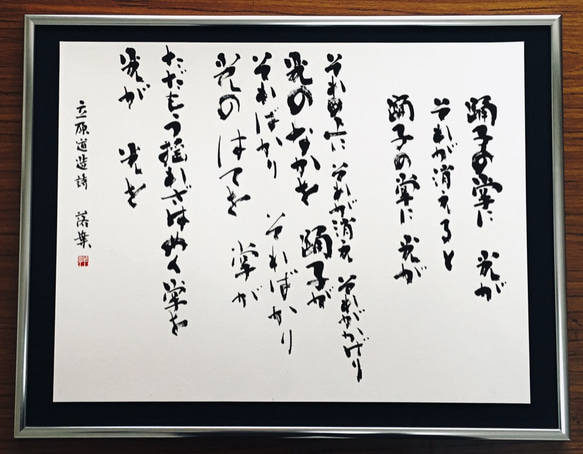 踊子の掌に 光が
それが消えると
踊子の掌に 光が
それゆゑに それが消え それがかげり
光のなかを 踊子が
そればかり そればかり
光のはてを 掌が
ただもう揺れざはめく掌を
光が 光を
立原道造詩